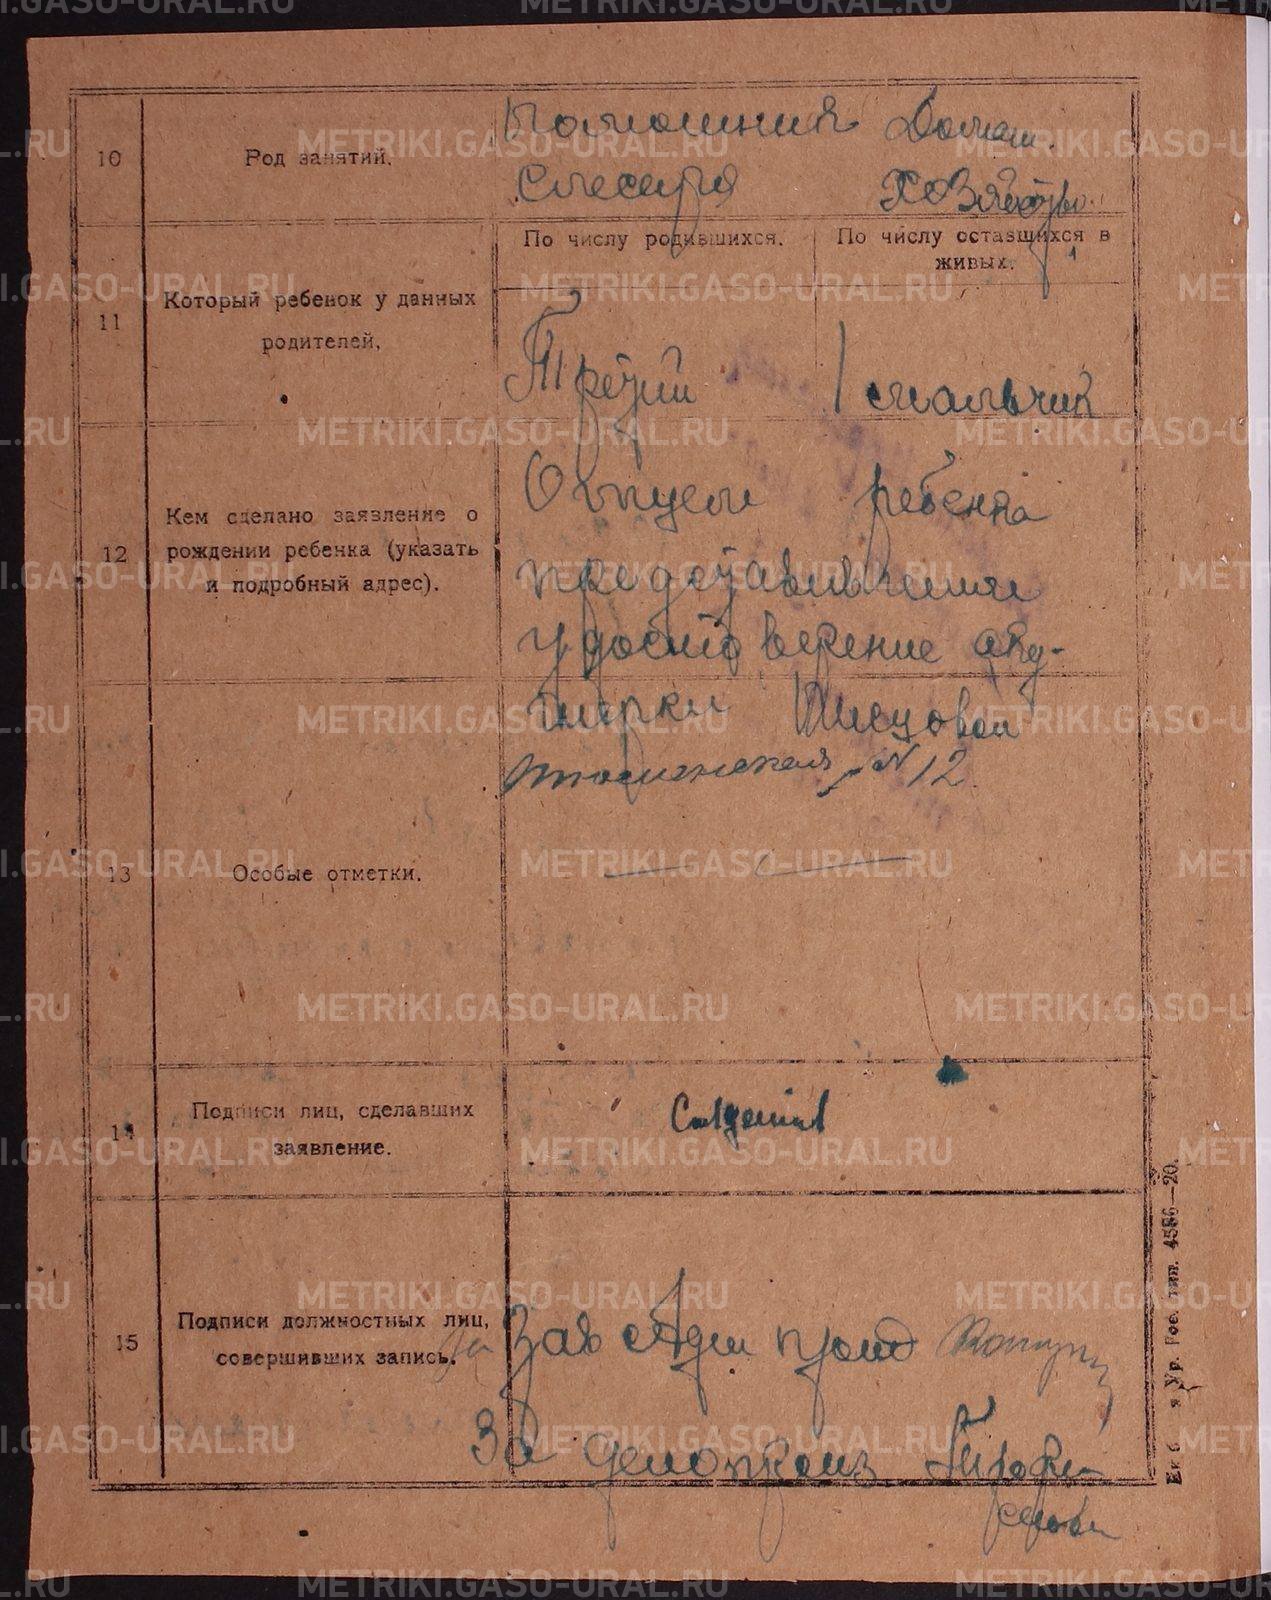 10
Род занятий.
Помошник
слесаря
Домаш.
Хозяйство.
11
Который ребенок у данных
родителей.
По числу родившихся.
По числу оставшихся в
живых.
Третий
1 мальчик
12
Кем сделано заявление о
рождении ребенка (указать
и подробный адрес).
Отцем ребенка
предоставившим
удостоверение аку-
шерки
N 12
13
Особые отметки.
14
Подписи лиц, сделавших
заявление.
15
Подписи должностных лиц,
совершивших запись.
за Зав
За делопроиз
тип. 4586—20.
METRIKI.GASO-URAL.RU